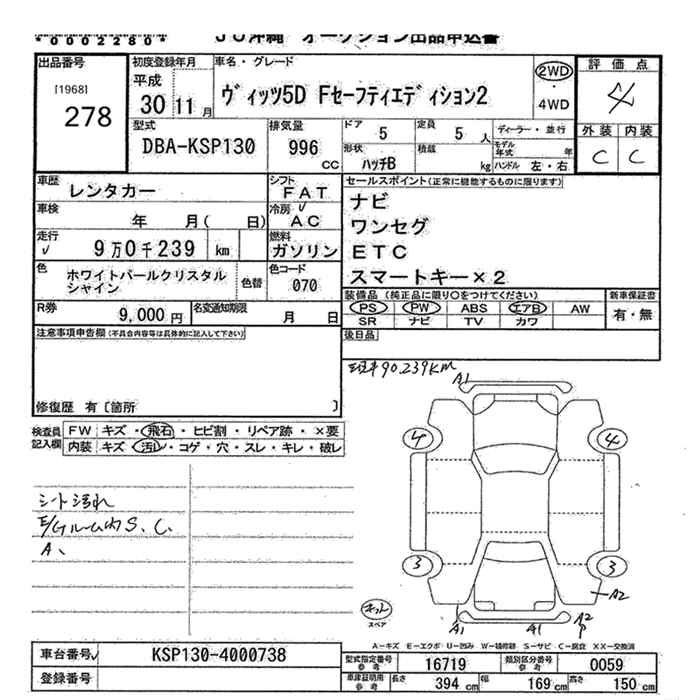 *0002280*
JU沖縄 オークション出品申込書
出品番号
[1968]
278
初度登録年月
平成
30 11 月
車名・グレード
ヴィッツ5D Fセーフティエディション2
2WD
・
4WD
評価点
4
外装 内装
C C
型式
DBA-KSP130
排気量
996
CC
ドア
5
定員
5 人
形状
ハッチB
積載
kg
ディーラー・並行
モデル年式 年
ハンドル 左・右
車歴
レンタカー
シフト
FAT
車検
年 月( 日)
冷房 √
AC
走行
√
9万0千239 km
燃料
ガソリン
色
ホワイトパールクリスタル
シャイン
色替
色コード
070
R券
9,000 円
名変通知期限
月 日
セールスポイント(正常に機能するものに限ります)
ナビ
ワンセグ
ETC
スマートキー×2
装備品(純正品に限り○をつけてください)
PS PW ABS エアB AW
SR ナビ TV カワ
新車保証書
有・無
後日品
注意事項申告欄(不具合内容等は具体的に記入して下さい)
修復歴 有〔箇所 〕
検査員
記入欄
FW キズ・飛石・ヒビ割・リペア跡・×要
内装 キズ・汚レ・コゲ・穴・スレ・キレ・破レ
シート汚れ
E/Gルーム内S、C、
A、
90.239KM
A1
4 4
3 3
A2
A1 A1 A2
P
キット
スペア
A-キズ E-エクボ U-凹み W-補修跡 S-サビ C-腐食 XX-交換済
車台番号√ KSP130-4000738
登録番号
型式指定番号
参考
16719
類別区分番号
参考
0059
車庫証明用
参考
長さ 394 cm 幅 169 cm 高さ 150 cm